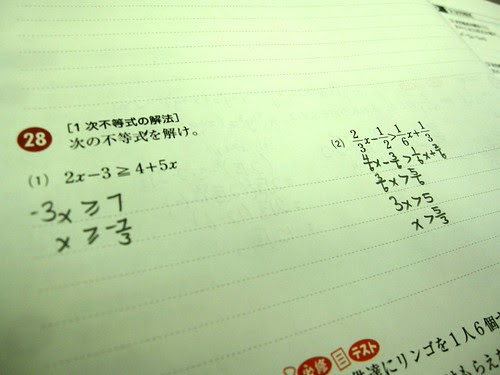 28
[1次不等式の解法]
次の不等式を解け。
(1) 2x-3≧4+5x
-3x ≥ 7
x ≥ -7/3
(2) 2/3x-1/2>1/6x+1/3
4/6x-3/6>1/6x+2/6
3/6x>5/6
3x>5
x>5/3
必修 テスト
にリンゴを1人6個